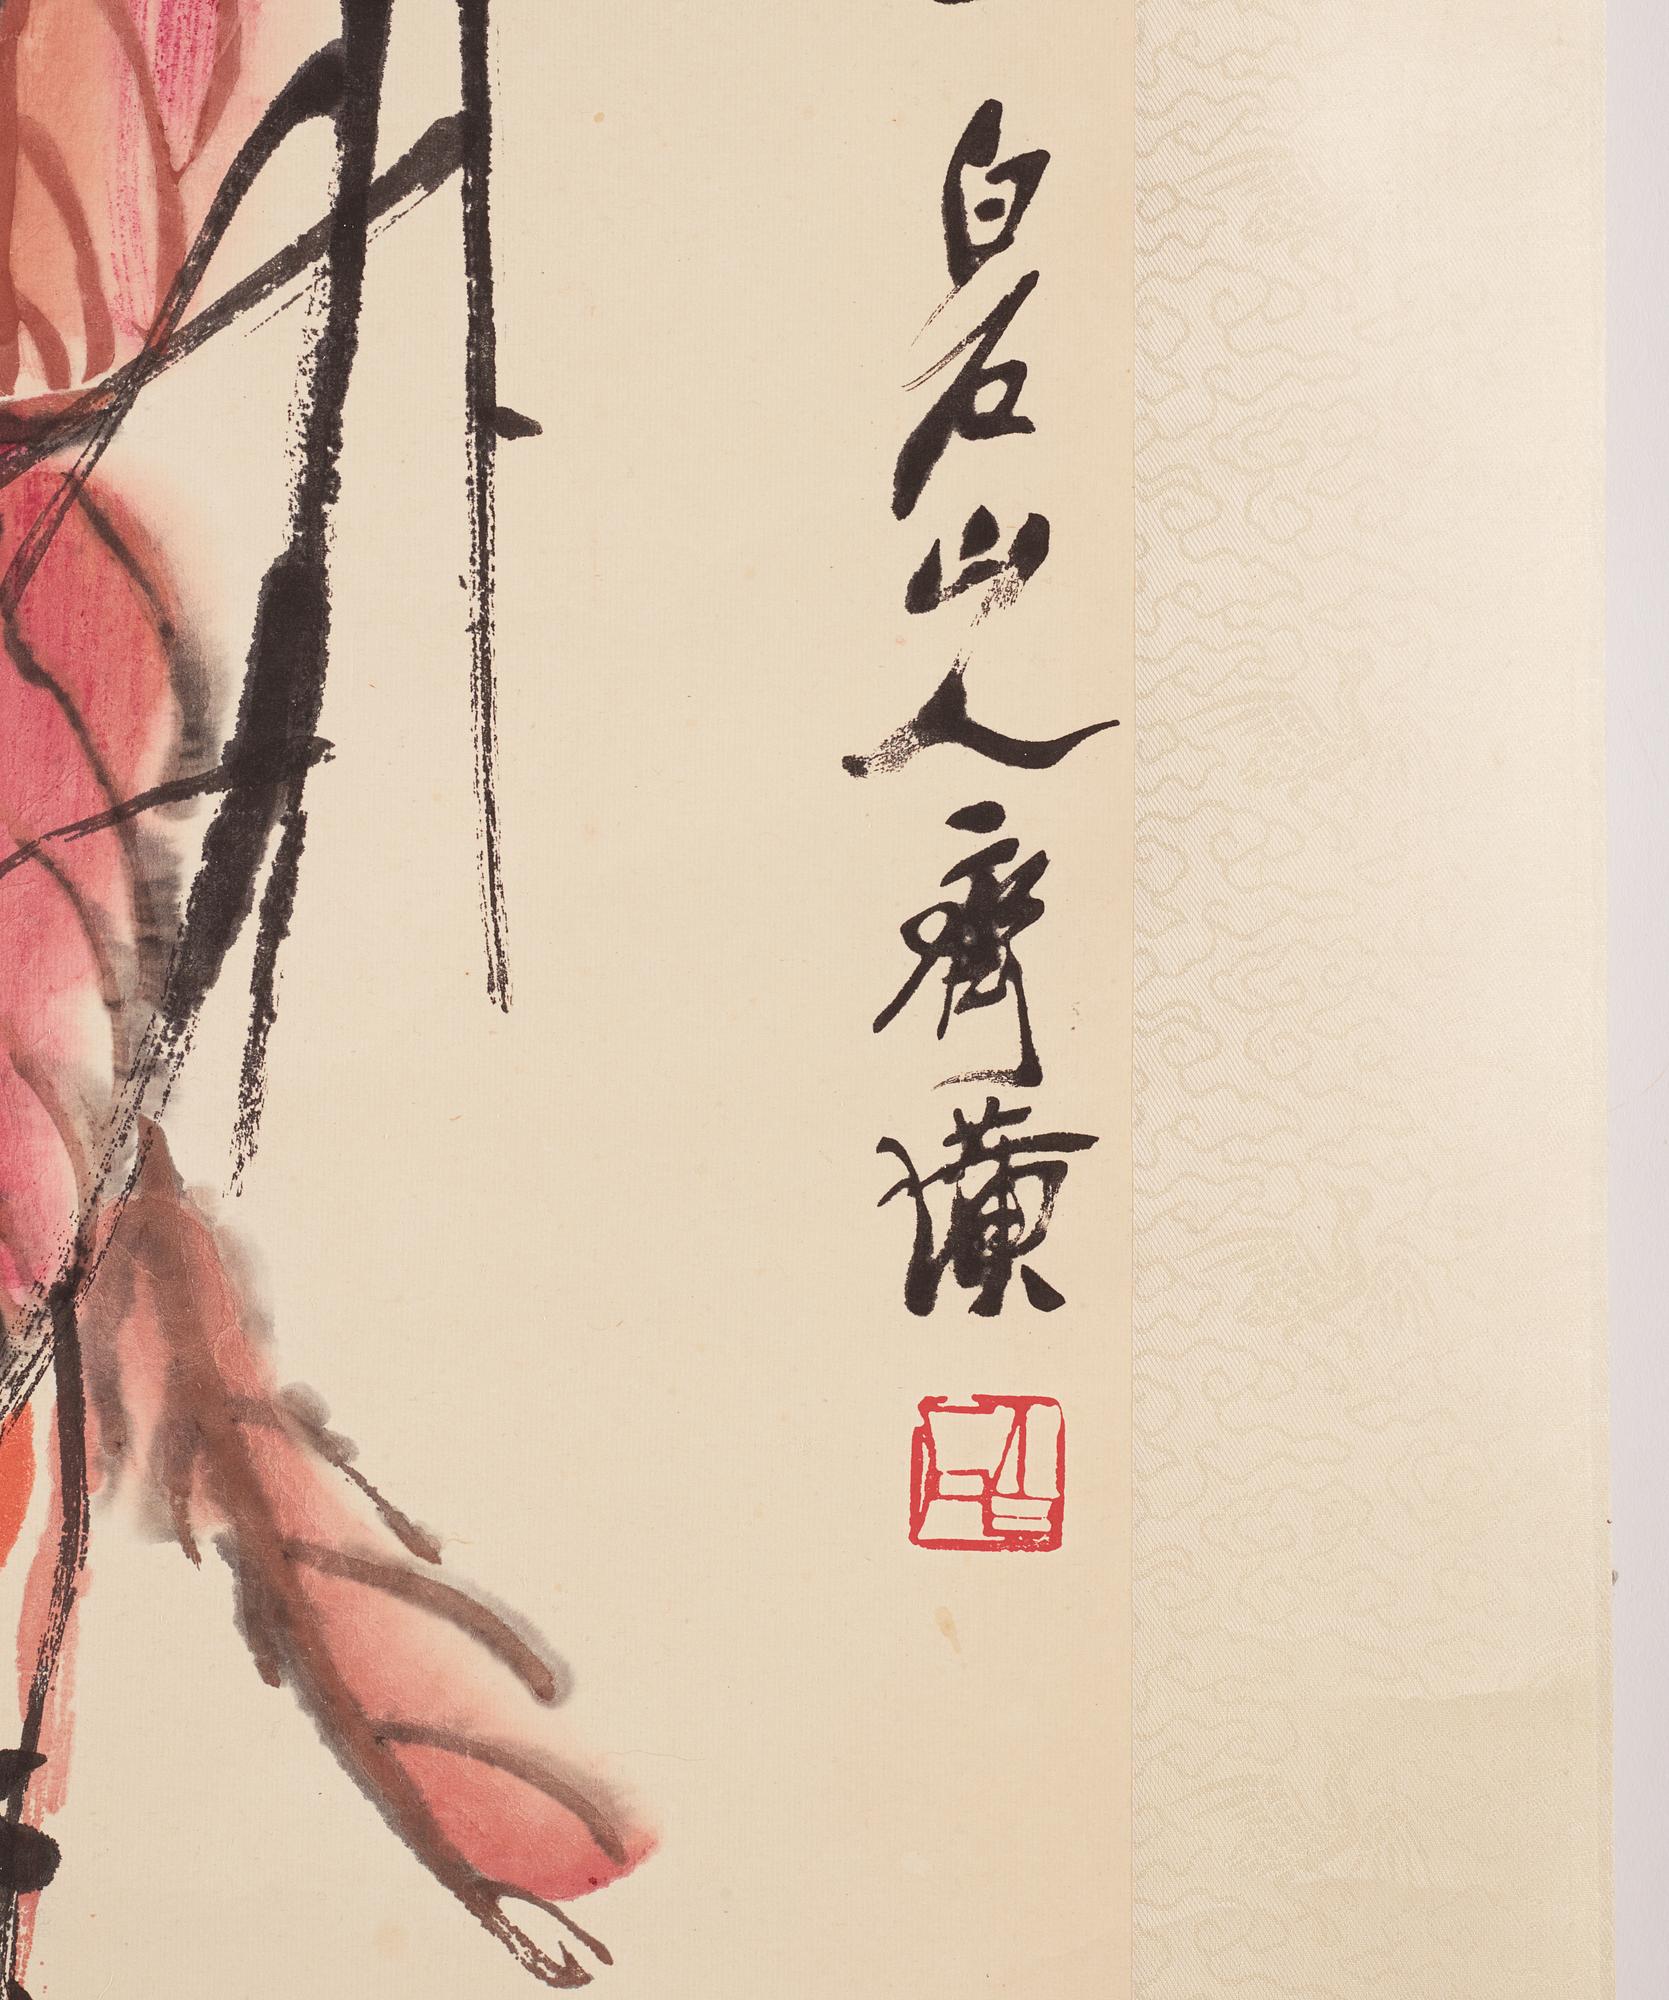 白石山人齊璜